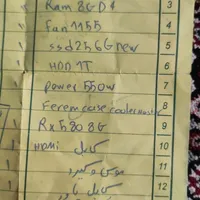 Ram 8G D4 3
Fan 1155 4
ssd 256G new 5
HDD 1T 6
power 550w 7
Ferem case cooler master 8
Rx580 8G 9
HDMI کابل 10
موس و کیبرد 11
کابل 12